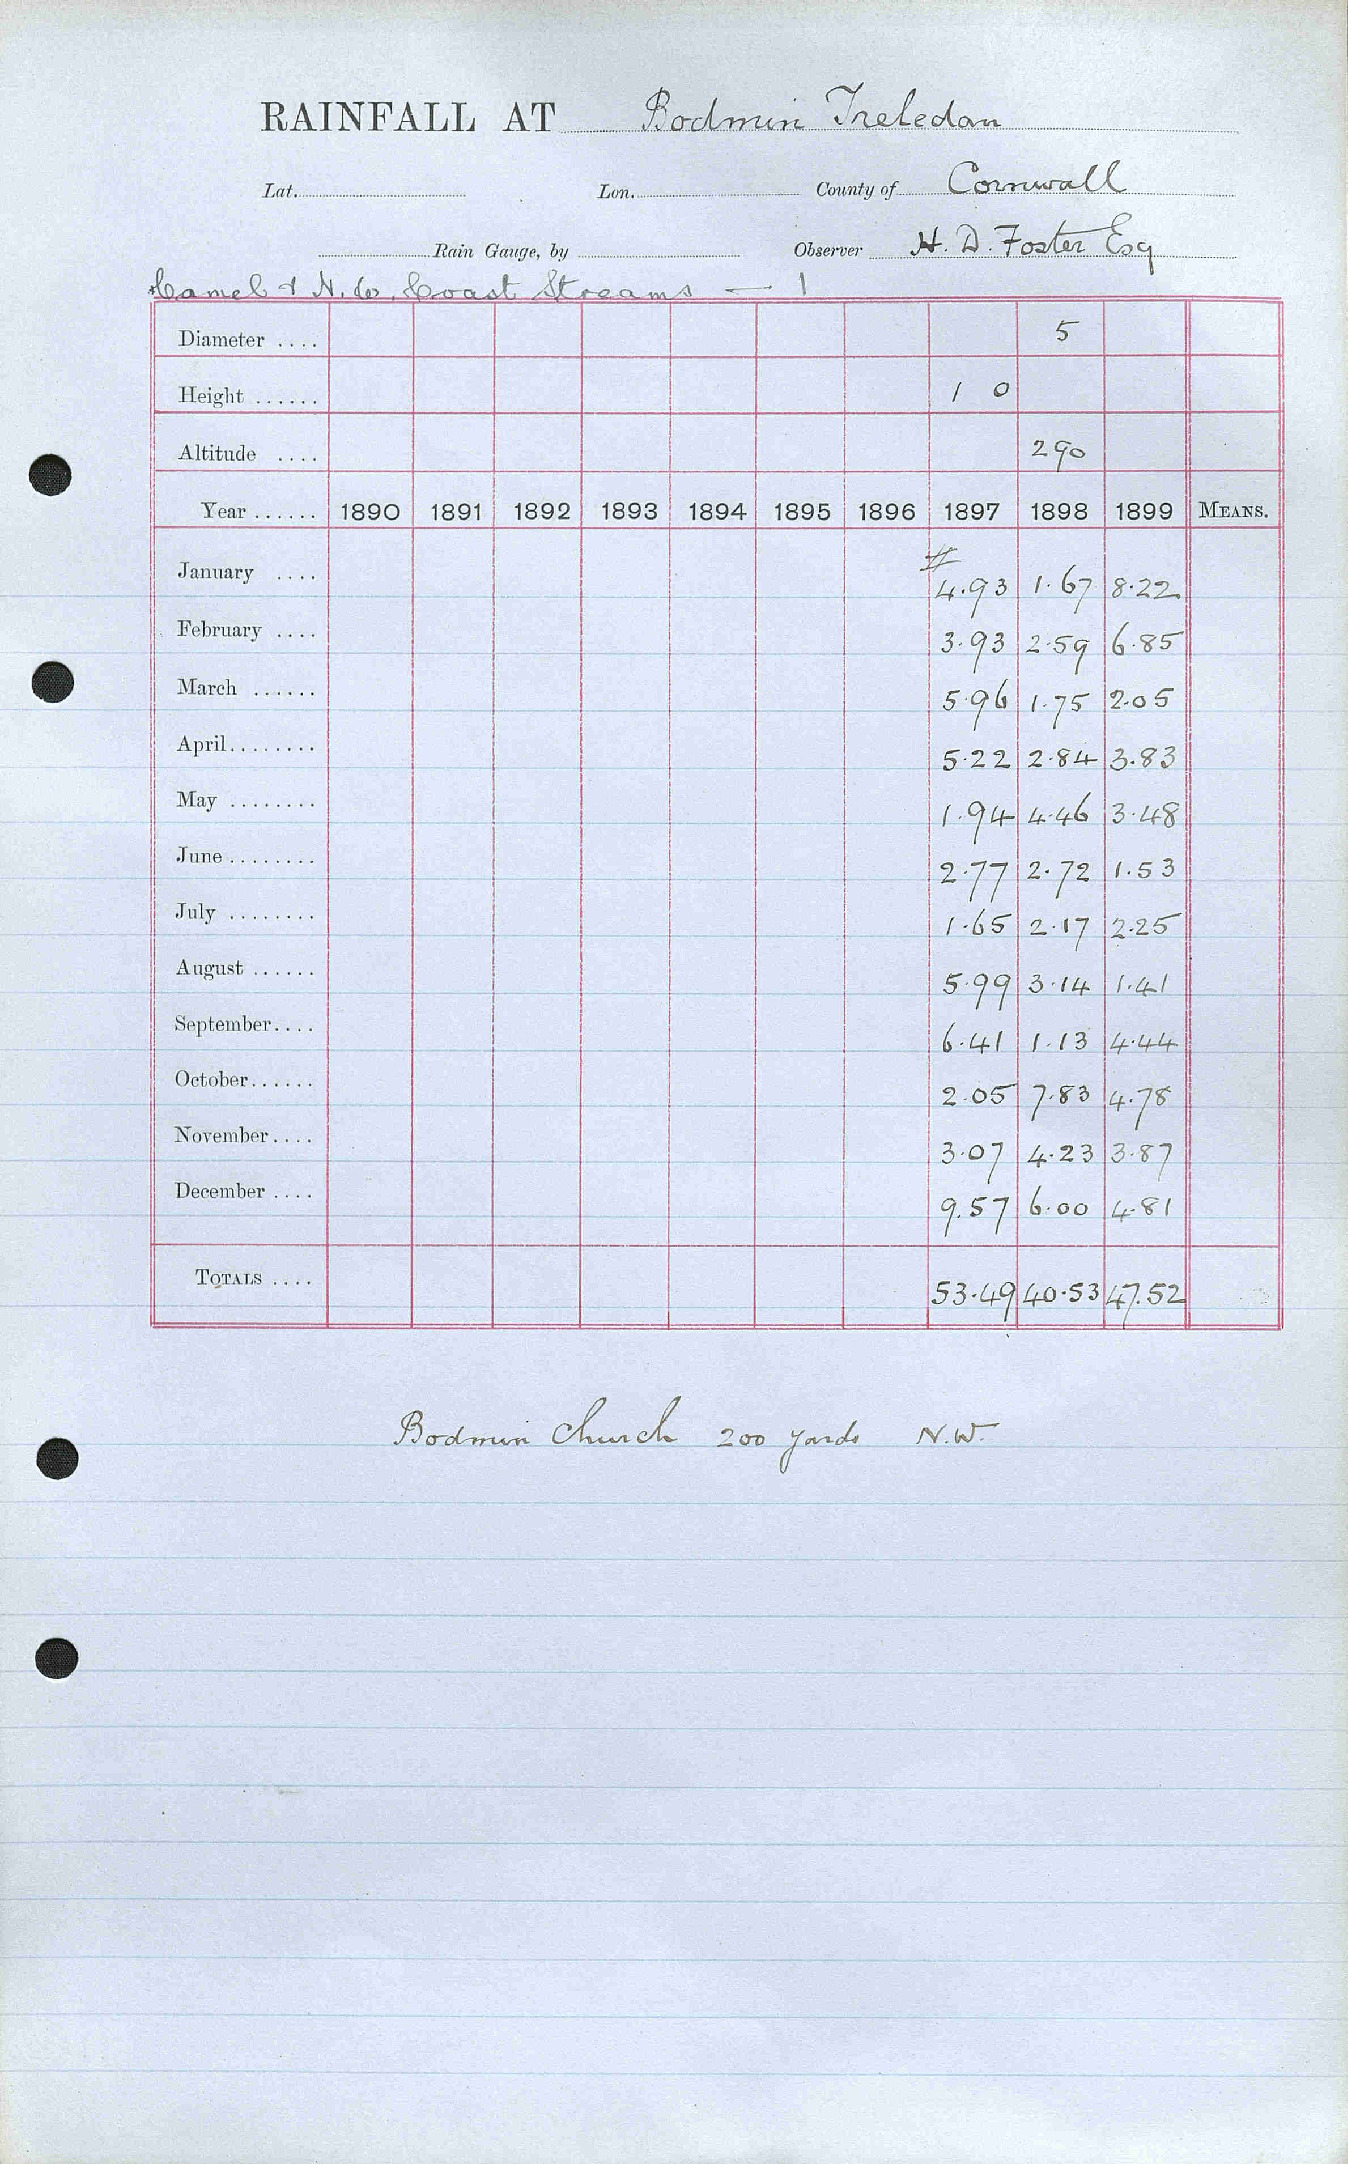 RAINFALL AT Bodmin Treledan
Lat. Lon. County of Cornwall
Rain Gauge, by Observer H. D. Foster Esq
Camel & N. Co. Coast Streams — 1
Diameter .... 5
Height ...... 1 0
Altitude .... 290
Year ...... 1890 1891 1892 1893 1894 1895 1896 1897 1898 1899 MEANS.
#
January .... 4.93 1.67 8.22
February .... 3.93 2.59 6.85
March ...... 5.96 1.75 2.05
April........ 5.22 2.84 3.83
May ........ 1.94 4.46 3.48
June ........ 2.77 2.72 1.53
July ........ 1.65 2.17 2.25
August ...... 5.99 3.14 1.41
September.... 6.41 1.13 4.44
October...... 2.05 7.83 4.78
November.... 3.07 4.23 3.87
December .... 9.57 6.00 4.81
TOTALS .... 53.49 40.53 47.52
Bodmin Church 200 yards N.W.